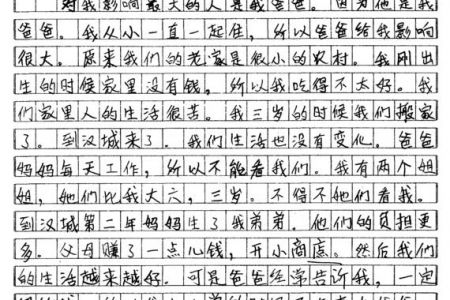 对我影响最大的人是我爸爸。因为他是我
爸爸。我从小一直一起住，所以爸爸给我影响
很大。原来我们的老家是很小的农村。我刚出
生的时候家里没有钱，所以我吃得不太好。我
们家里人的生活很苦。我三岁的时候我们搬家
了。到汉城来了。我们生活也没有变化。爸爸
妈妈每天工作，所以不能看我们。我有两个姐
姐，她们比我大六，三岁。不得不她们看我。
到汉城第二年妈妈生了我弟弟。他们的负担更
多。父母赚了一点儿钱，开小商店。然后我们
的生活越来越好。可是爸爸经常告诉我，一定